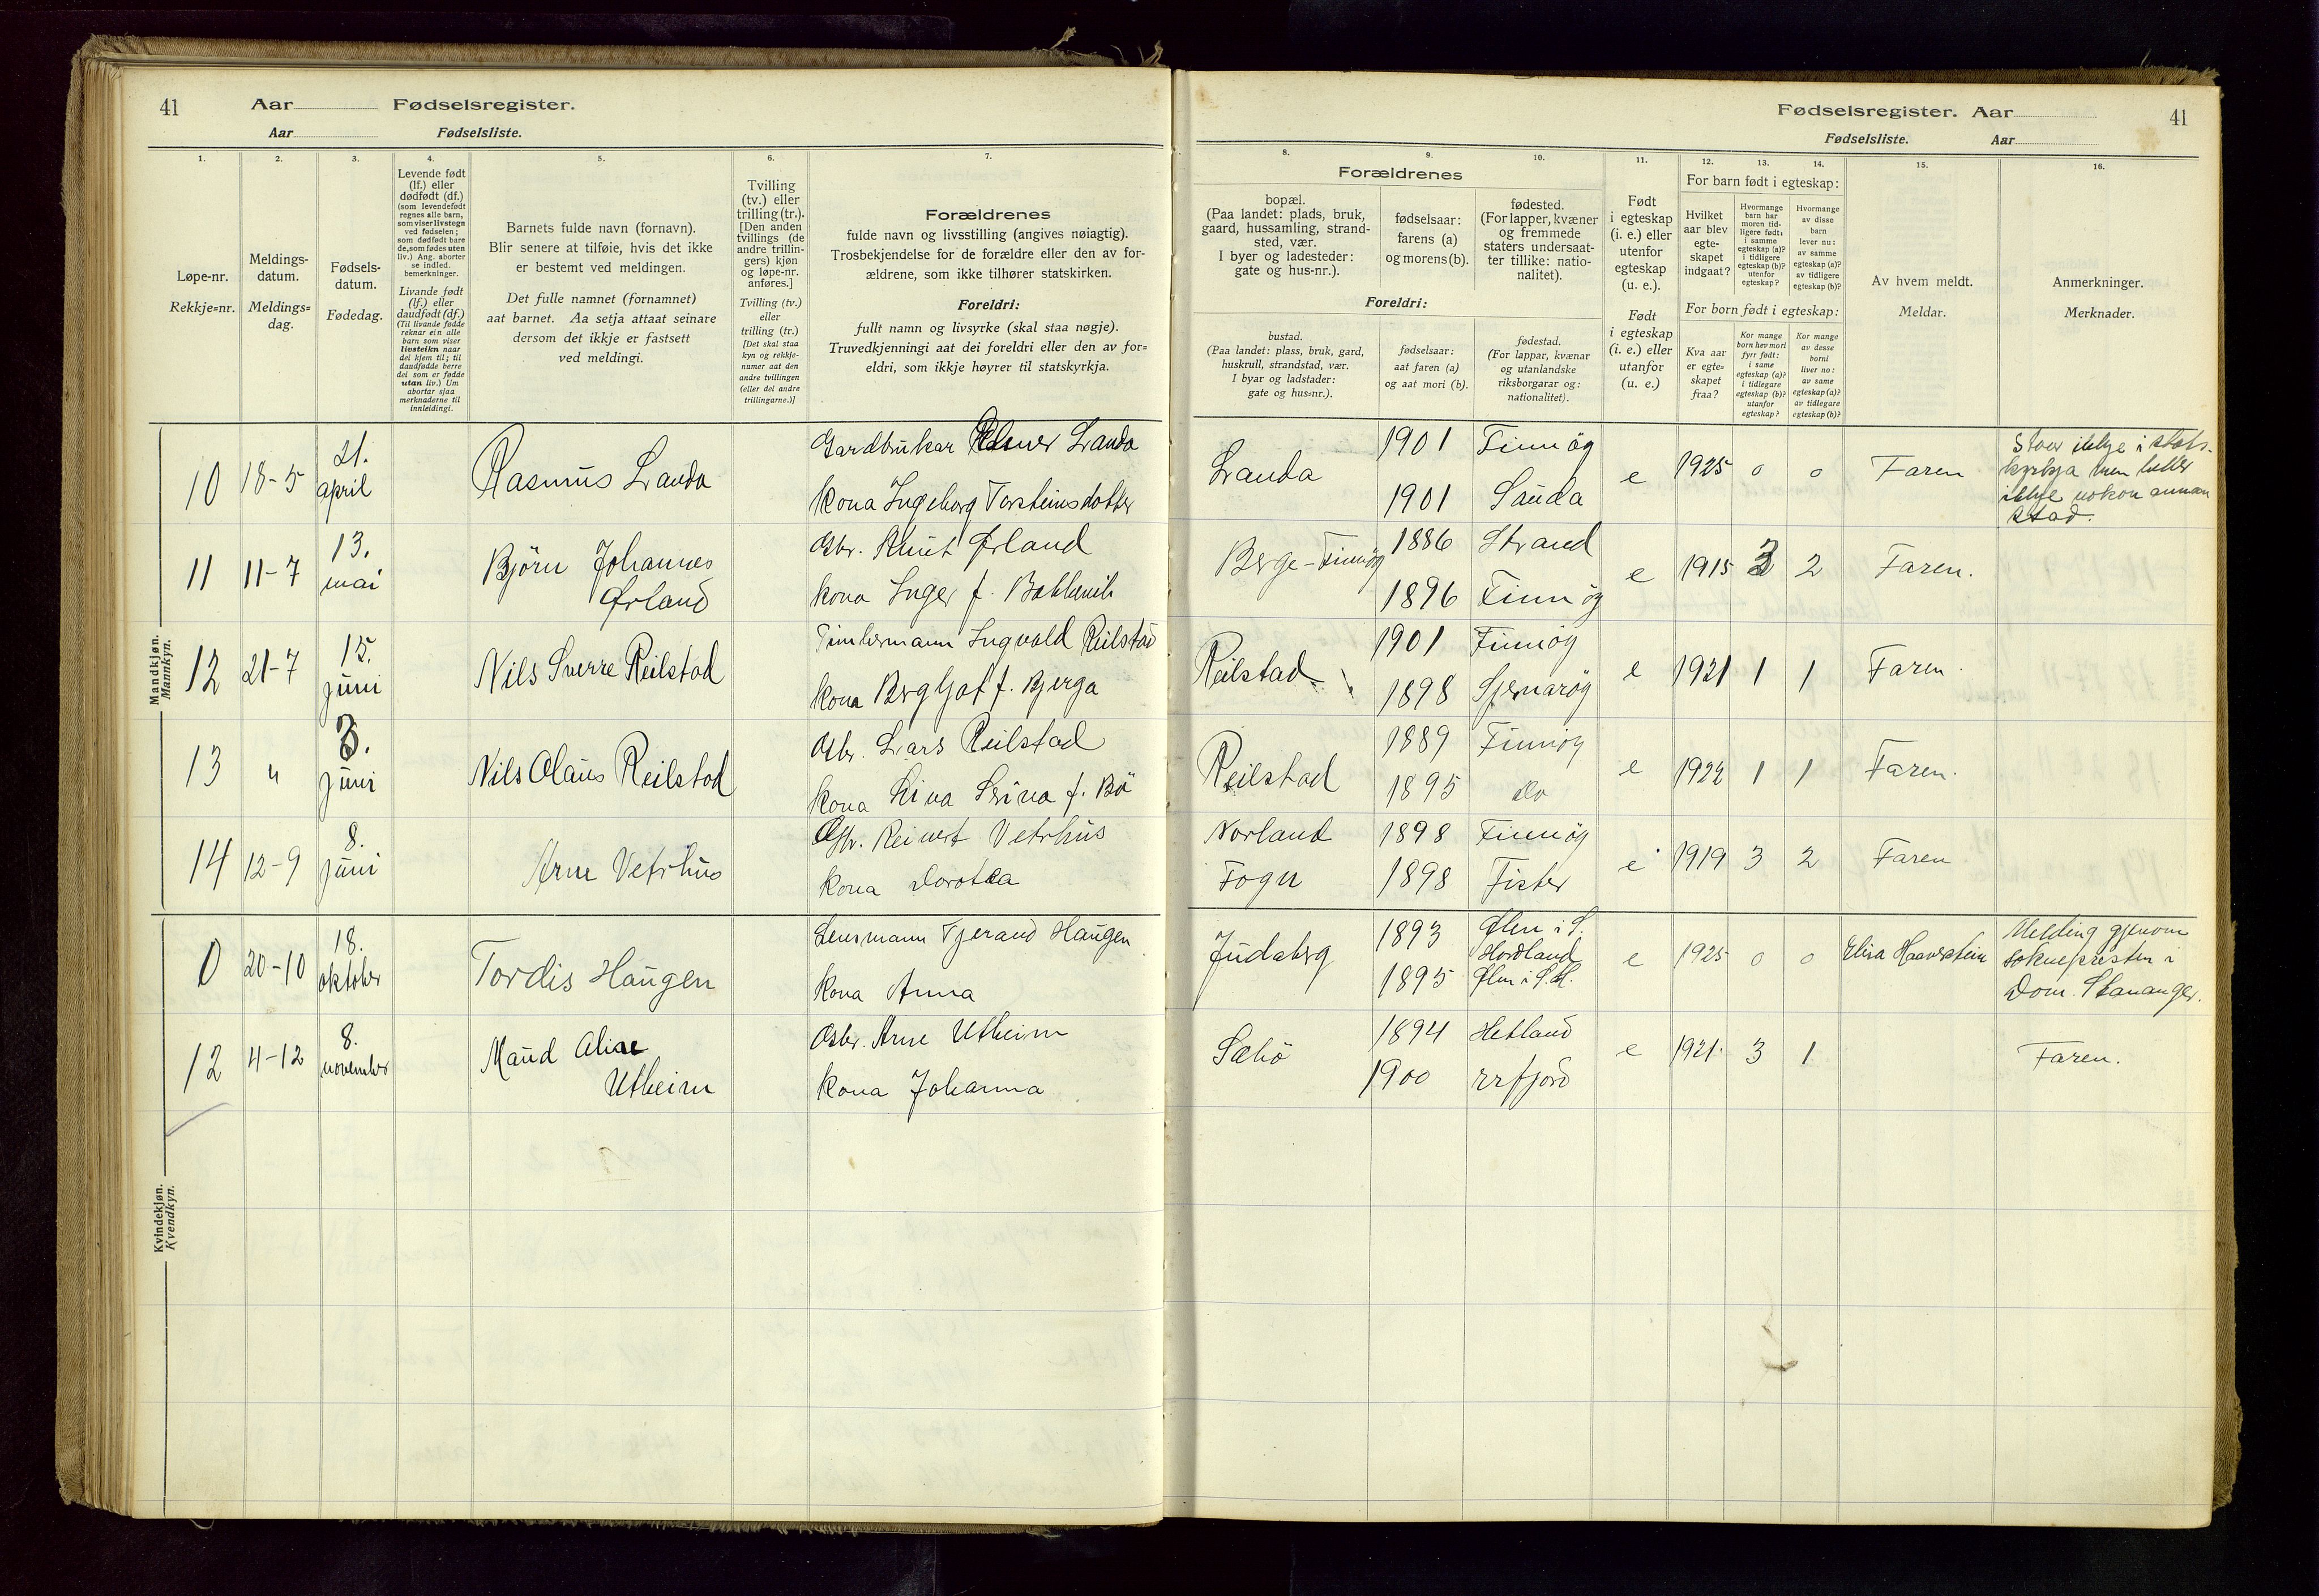 41 Aar Fødselsregister.
Aar Fødselsliste.
Fødselsregister. Aar 41
Fødselsliste. Aar
1.
Løpe-nr.
Rekkje=nr.
2.
Meldings-
datum.
Meldings=
dag.
3.
Fødsels-
datum.
Fødedag.
4.
Levende født
(lf.) eller
dødfødt (df.)
(som levendefødt
regnes alle barn,
som viser livstegn
ved fødselen;
som dødfødt bare
de, som fødes uten
liv.) Ang. aborter
se indled.
bemerkninger.
Livande født
(lf.) eller
daudfødt (df.)
(Til livande fødde
reknar ein alle
barn som viser
livsteikn naar
dei kjem til; til
daudfødde berre
dei som er fødde
utan liv.) Um
abortar sjaa
merknaderne til
innleidingi.
5.
Barnets fulde navn (fornavn).
Blir senere at tilføie, hvis det ikke
er bestemt ved meldingen.
Det fulle namnet (fornamnet)
aat barnet. Aa setja attaat seinare
dersom det ikkje er fastsett
ved meldingi.
6.
Tvilling
(tv.) eller
trilling (tr.).
[Den anden
tvillings (de
andre trillin-
gers) kjøn
og løpe-nr.
anføres.]
Tvilling (tv.)
eller
trilling (tr.)
[Det skal staa
kyn og rekkje-
numer aat den
andre tvillingen
(eller dei andre
trillingarne.)]
7.
Forældrenes
fulde navn og livsstilling (angives nøiagtig).
Trosbekjendelse for de forældre eller den av for-
ældrene, som ikke tilhører statskirken.
Foreldri:
fullt namn og livsyrke (skal staa nøgje).
Truvedkjenningi aat dei foreldri eller den av for=
eldri, som ikkje høyrer til statskyrkja.
Forældrenes
8.
bopæl.
(Paa landet: plads, bruk,
gaard, hussamling, strand-
sted, vær.
I byer og ladesteder:
gate og hus-nr.).
Foreldri:
bustad.
(Paa landet: plass, bruk, gard,
huskrull, strandstad, vær.
I byar og ladstader:
gate og hus=nr.).
9.
fødselsaar:
farens (a)
og morens (b).
fødselsaar:
aat faren (a)
og aat mori (b).
10.
fødested.
(For lapper, kvæner
og fremmede
staters undersaat-
ter tillike: natio-
nalitet).
fødestad.
(For lappar, kvænar
og utanlandske
riksborgarar og:
nationalitet).
11.
Født
i egteskap
(i. e.) eller
utenfor
egteskap
(u. e.).
Født
i egteskap
(i. e.) eller
utanfor
(u. e.)
For barn født i egteskap:
12.
Hvilket
aar blev
egte-
skapet
indgaat?
For born født i egteskap:
Kva aar
er egte=
skapet
fraa?
13.
Hvormange
barn har
moren tid-
ligere født:
i samme
egteskap (a)?
i tidligere
egteskap (b)?
utenfor
egteskap?
Kor mange
born hev mori
fyrr født:
i same
egteskap (a)?
i tidlegare
egteskap (b)?
utanfor
egteskap?
14.
Hvormange
av disse
barn
lever nu:
av samme
egteskap (a)?
av tidligere
egteskap (b)?
Kor mange
av desse
borni
liver no:
av same
egteskap (a)?
av tidlegare
egteskap (b)?
15.
Av hvem meldt.
Meldar.
16.
Anmerkninger.
Merknader.
Mandkjøn.
Mannkyn.
10 18-5 21. april Rasmus Landa
Gardbrukar Landa
Kona Ingeborg Torsteinsdotter
Landa 1901 Finnöy
1901 Sauda
e 1925 0 0 Faren
Staar ikkje i stats-
kyrkja men heller
ikkje nokon annan
stad.
11 11-7 13. mai Björn Johannes
Ørland
Gbr. Knut Ørland
Kona Inger f.
Berge-Finnöy 1886 Strand
1896 Finnöy
e 1915 3 2 Faren.
12 21-7 15. juni Nils Sverre Reilstad
Timbermann Ingvald Reilstad
Kona Bergljot f. Bjerga
Reilstad 1901 Finnöy
1898 Sjernaröy
e 1921 1 1 Faren.
13 " 3. juni Nils Olaus Reilstad
Gbr. Lars Reilstad
Kona Lina Serina f. Bö
Reilstad 1889 Finnöy
1895 do
e 1922 1 1 Faren.
14 12-9 8. juni Arne Vetrhus
Gbr. Reinert Vetrhus
Kona Dorotea
Norland
Fogn
1898 Finnöy
1898 Fister
e 1919 3 2 Faren
Kvindekjøn.
Kvendkyn.
0 20-10 18. oktober Tordis Haugen
Lensmann Tjerand Haugen
Kona Anna
Judaberg 1893 Ølen i S.
Hordland
1895 Ølen i S.H.
e 1925 0 0 Elisa Haaverstein
Melding gjenom
soknepresten i
Dom. Stavanger.
12 4-12 8. november Maud Alise
Utheim
Gbr. Arne Utheim
Kona Johanna
Sæbö 1894 Hetland
1900
e 1921 3 1 Faren.